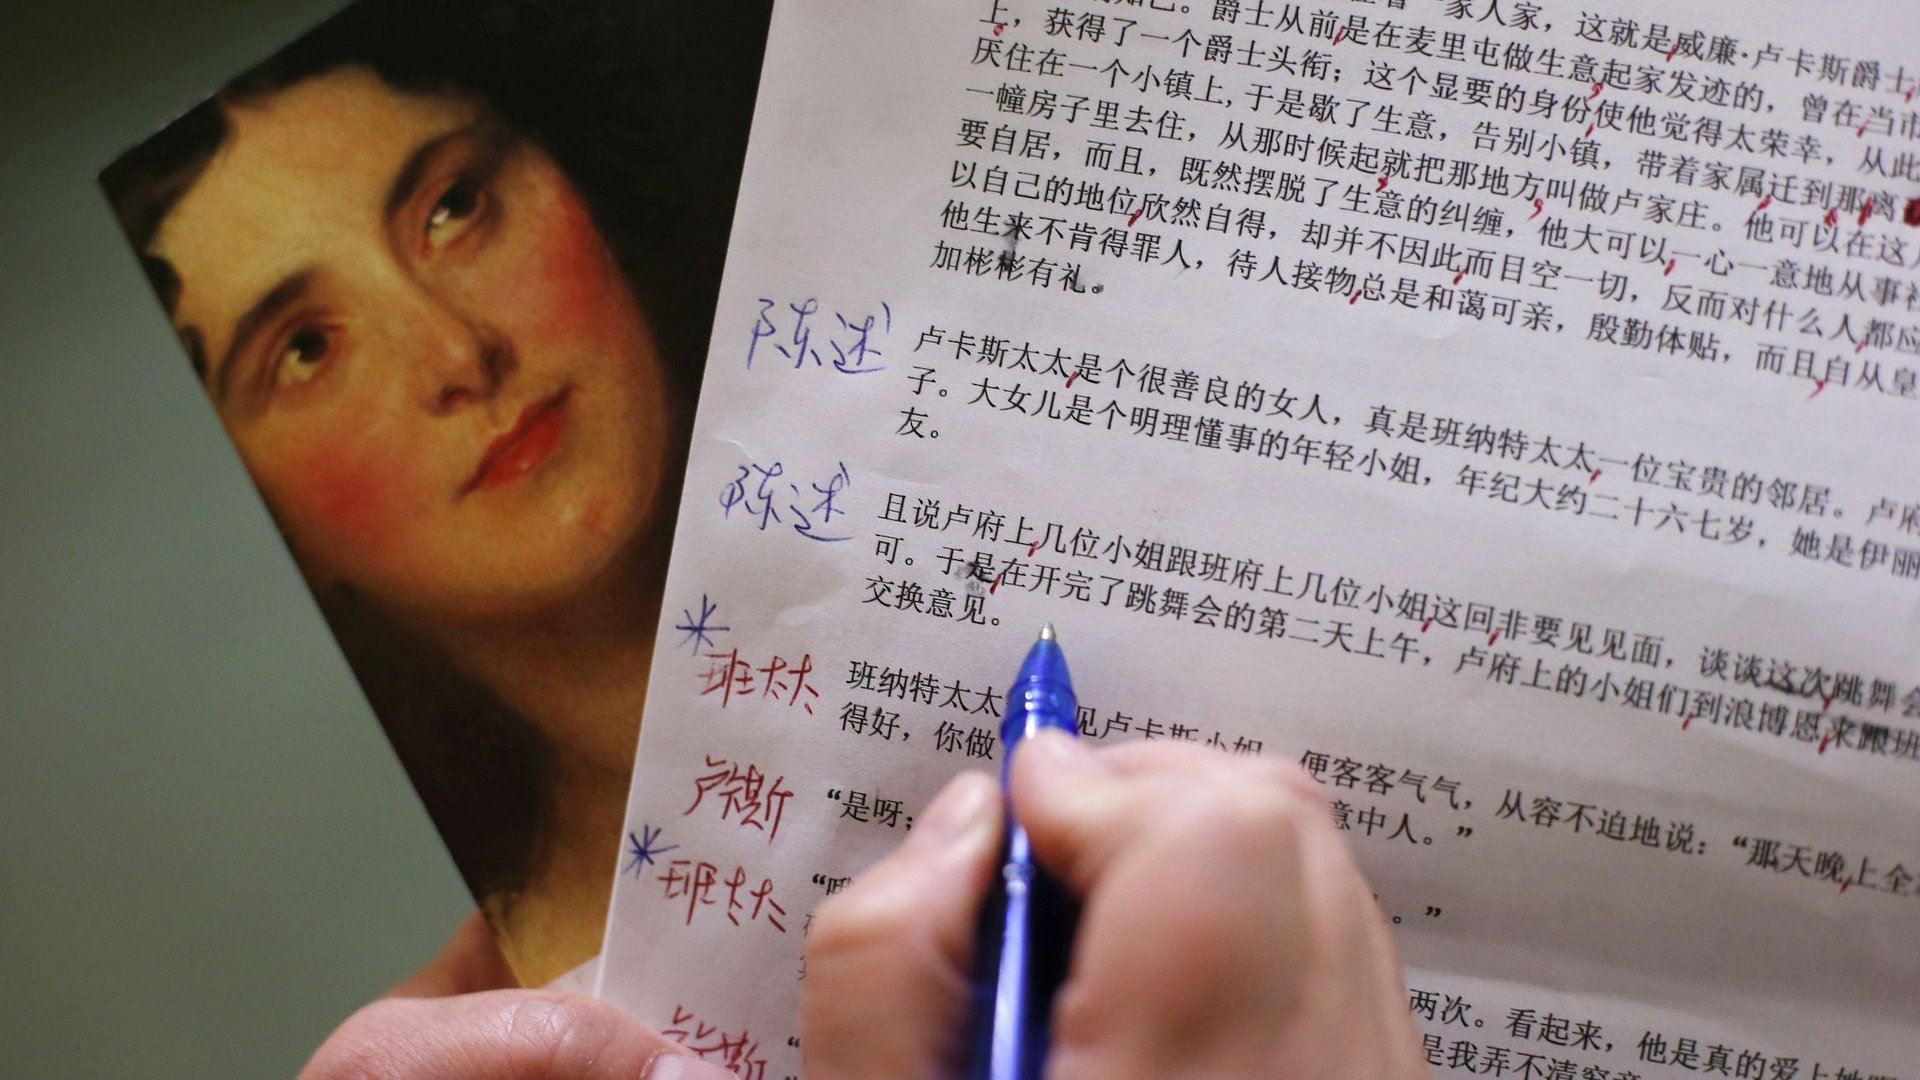 一家人家，这就是威廉·卢卡斯爵士
上，获得了一个爵士头衔；这个显要的身份使他觉得太荣幸，从此
爵士从前是在麦里屯做生意起家发迹的，曾在当市
厌住在一个小镇上，于是歇了生意，告别小镇，带着家属迁到那离
一幢房子里去住，从那时候起就把那地方叫做卢家庄。他可以在这
要自居，而且，既然摆脱了生意的纠缠，他大可以一心一意地从事社
以自己的地位欣然自得，却并不因此而目空一切，反而对什么人都应
他生来不肯得罪人，待人接物总是和蔼可亲，殷勤体贴，而且自从皇
加彬彬有礼。
陈述
卢卡斯太太是个很善良的女人，真是班纳特太太一位宝贵的邻居。卢府
子。大女儿是个明理懂事的年轻小姐，年纪大约二十六七岁，她是伊丽
友。
陈述
且说卢府上几位小姐跟班府上几位小姐这回非要见见面，谈谈这次跳舞会
可。于是在开完了跳舞会的第二天上午，卢府上的小姐们到浪博恩来跟班
交换意见。
班太太
班纳特太太 见卢卡斯小姐，便客客气气，从容不迫地说：“那天晚上全
得好，你做 意中人。”
“是呀；
班太太
“哦 。”
两次。看起来，他是真的爱上她
是我弄不清究竟